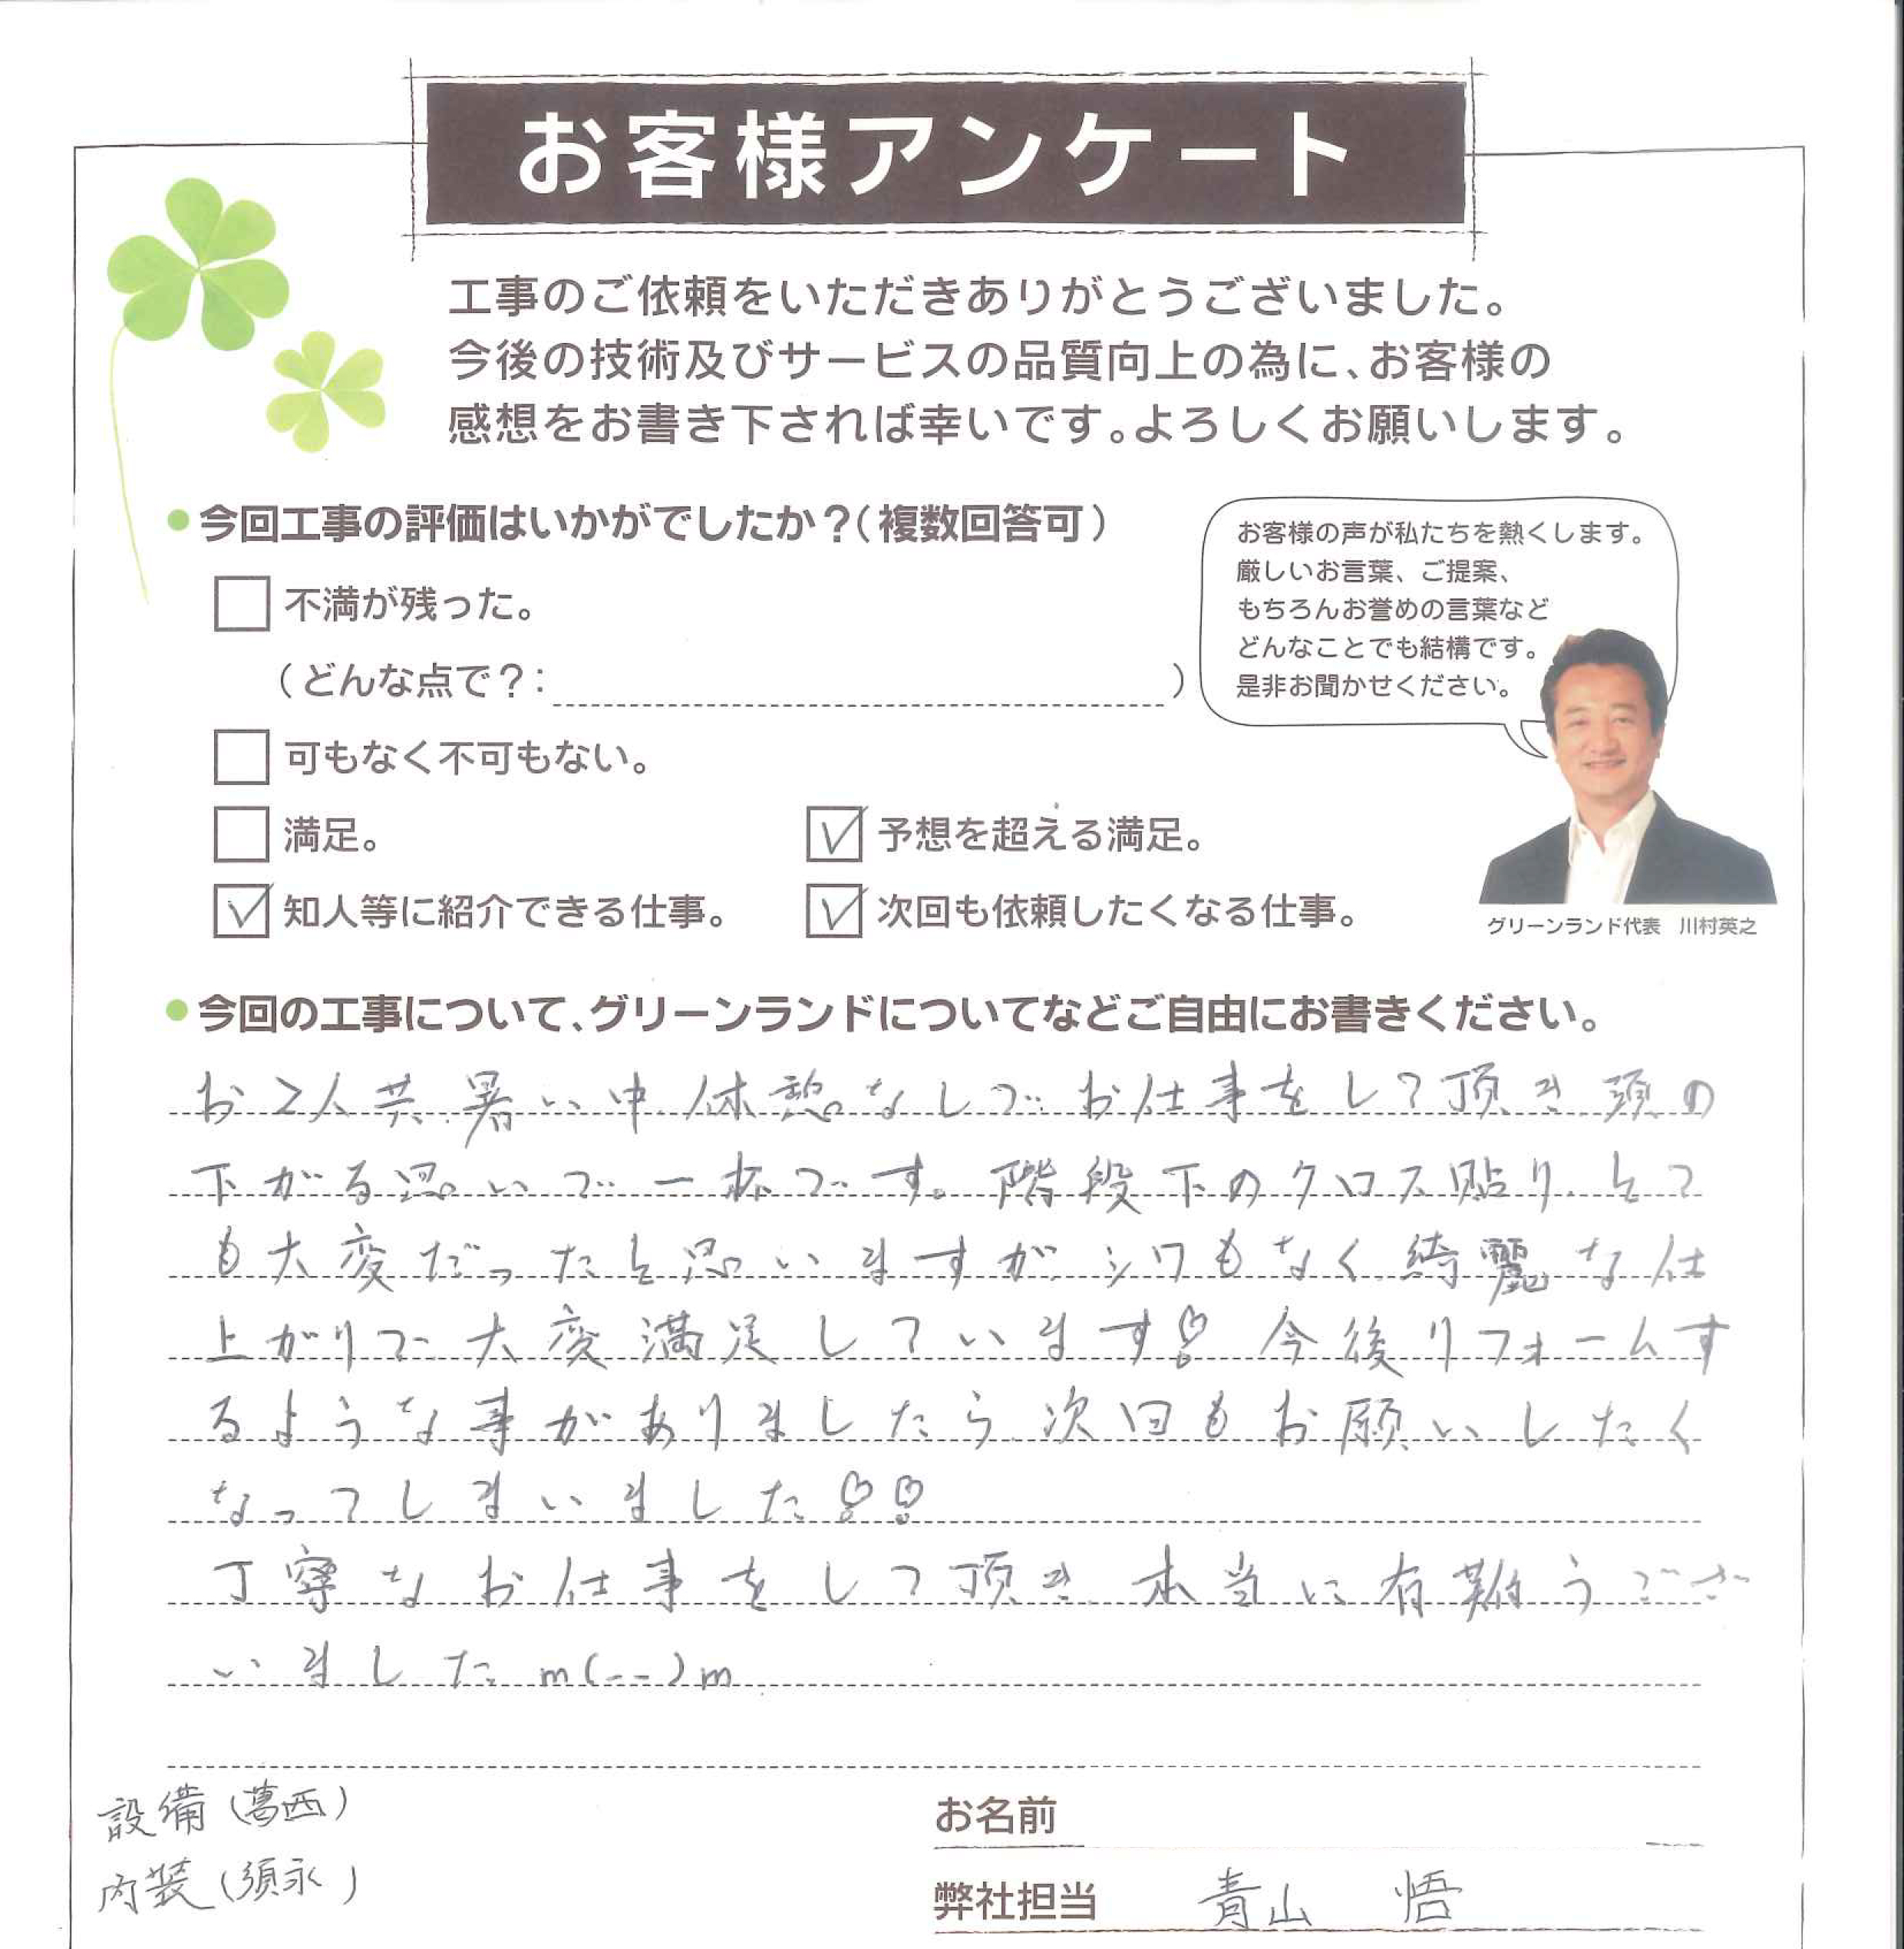 お客様アンケート
工事のご依頼をいただきありがとうございました。
今後の技術及びサービスの品質向上の為に、お客様の
感想をお書き下されば幸いです。よろしくお願いします。
●今回工事の評価はいかがでしたか？(複数回答可)
お客様の声が私たちを熱くします。
厳しいお言葉、ご提案、
もちろんお誉めの言葉など
どんなことでも結構です。
是非お聞かせください。
不満が残った。
(どんな点で？: )
可もなく不可もない。
満足。
予想を超える満足。
知人等に紹介できる仕事。
次回も依頼したくなる仕事。
グリーンランド代表 川村英之
●今回の工事について、グリーンランドについてなどご自由にお書きください。
お2人共、暑い中、休憩なしで お仕事をして頂き、頭の
下がる思いで一杯です。階段下のクロス貼り、とて
も大変だったと思いますが、シワもなく、綺麗な仕
上がりで、大変満足しています♡ 今後リフォームす
るような事がありましたら、次回もお願いしたく
なってしまいました♡♡
丁寧なお仕事をして頂き、本当に有難うござ
いました m(--)m
設備(葛西)
内装(須永)
お名前
弊社担当 青山 悟